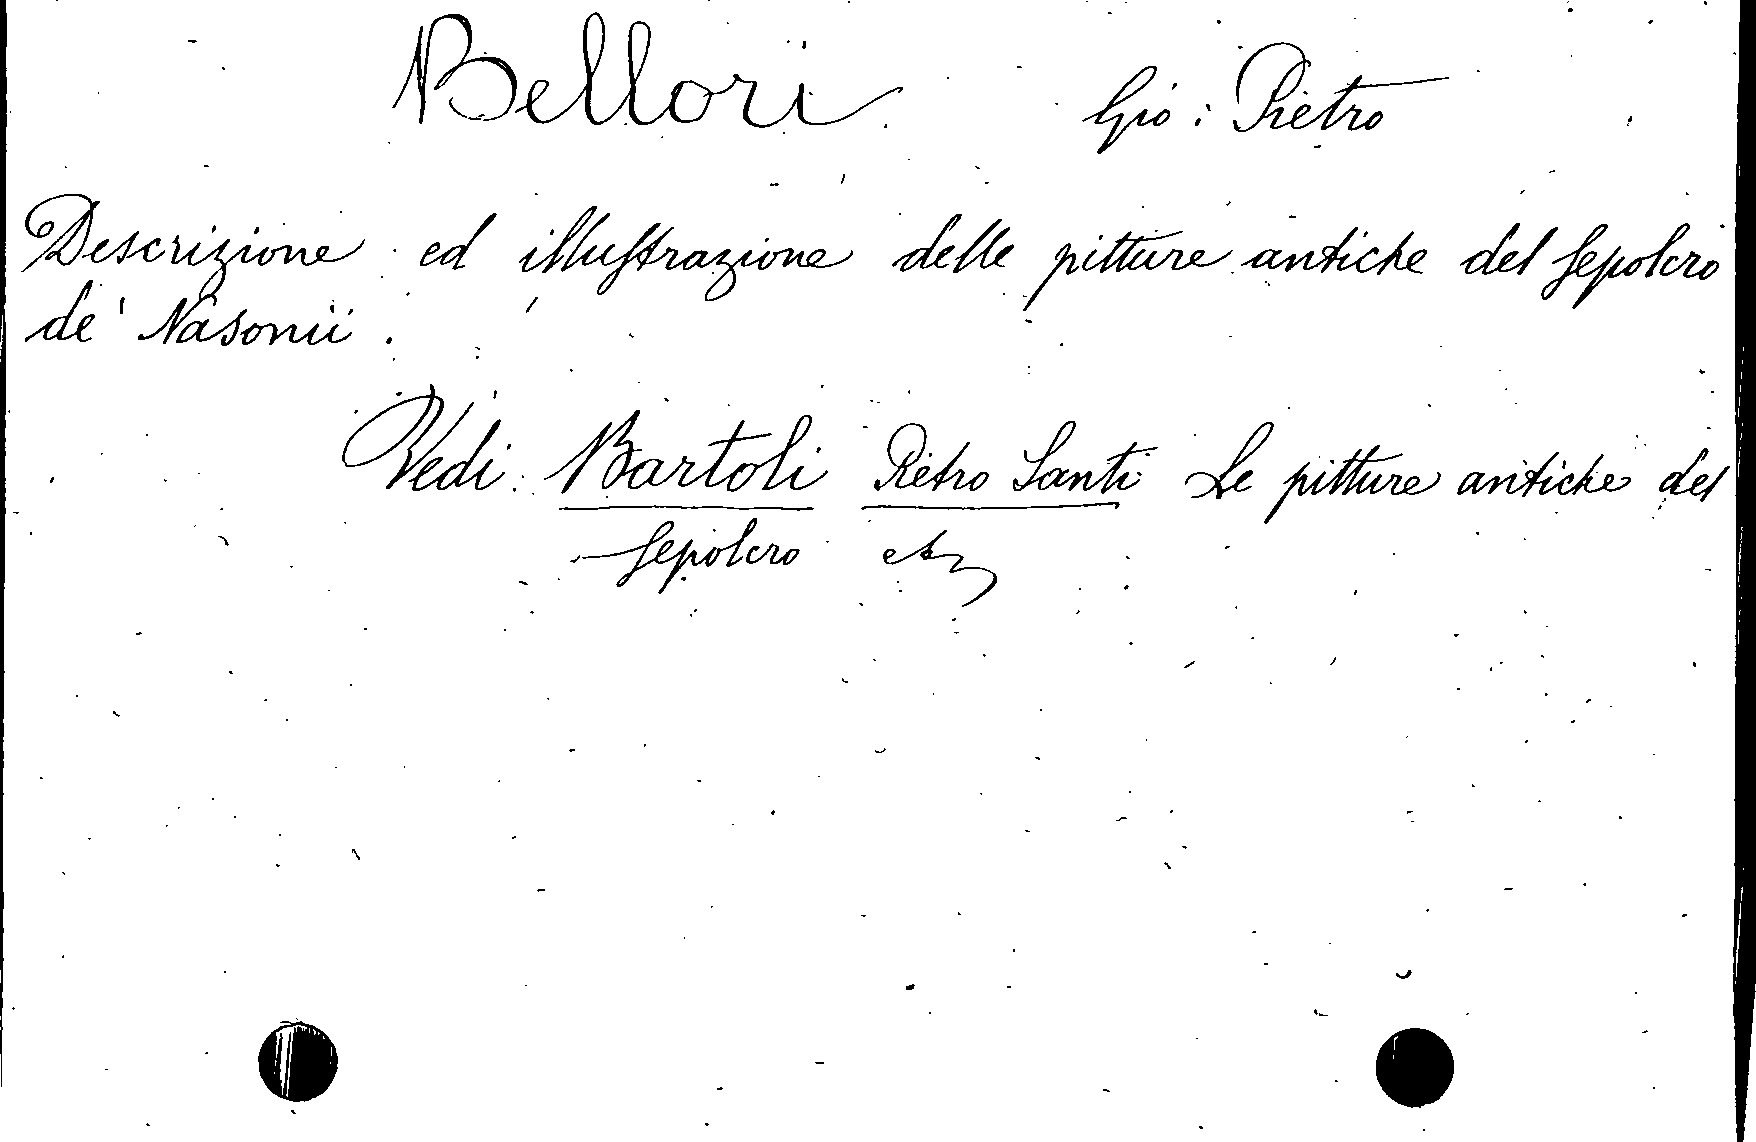 Bellori Gio: Pietro
Descrizione ed illustrazione delle pitture antiche del sepolcro
de' Nasonii.
Vedi Bartoli Pietro Santi Le pitture antiche del
sepolcro etc